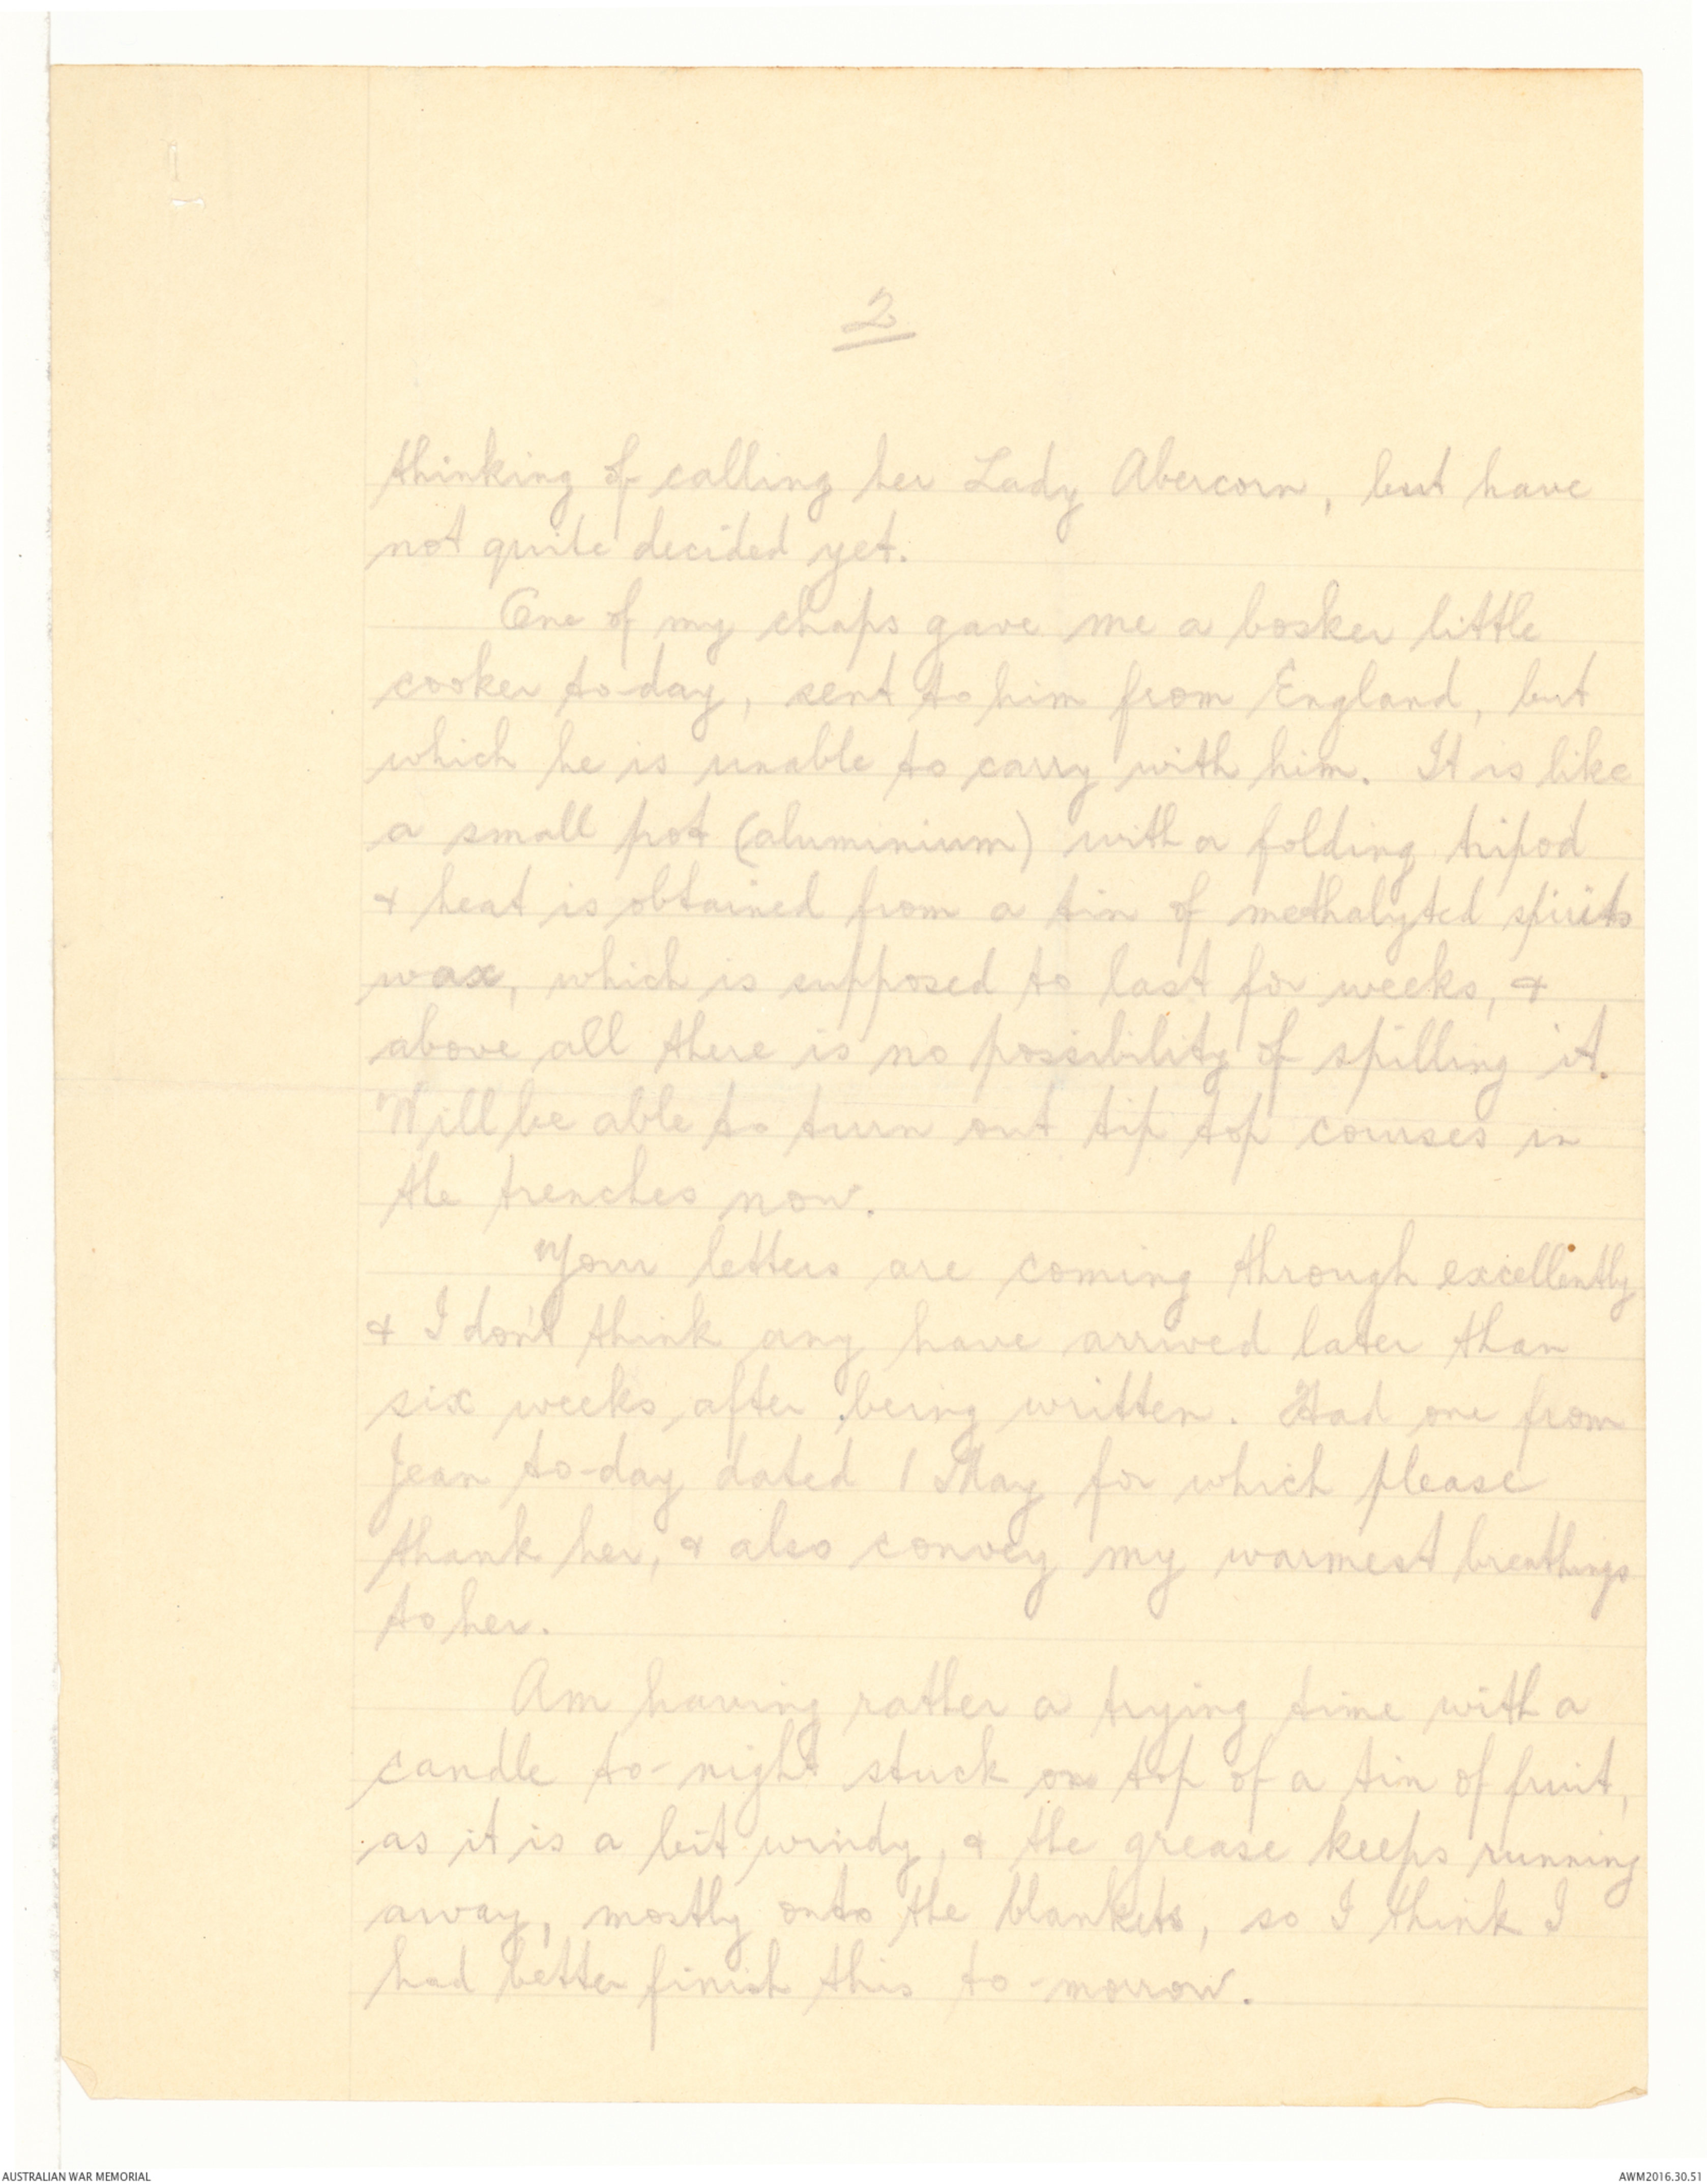 2
thinking of calling her Lady Abercorn, but have
not quite decided yet.
One of my chaps gave me a bosker little
cooker to-day, sent to him from England, but
which he is unable to carry with him. It is like
a small pot (aluminium) with a folding tripod
& heat is obtained from a tin of methalyted spirits
wax, which is supposed to last for weeks, &
above all there is no possibility of spilling it.
Will be able to turn out tip top courses in
the trenches now.
Your letters are coming through excellently
& I don't think any have arrived later than
six weeks after being written. Had one from
Jean to-day dated 1 May for which please
thank her, & also convey my warmest breathings
to her.
Am having rather a trying time with a
candle to-night stuck on top of a tin of fruit,
as it is a bit windy, & the grease keeps running
away, mostly onto the blankets, so I think I
had better finish this to-morrow.
AUSTRALIAN WAR MEMORIAL
AWM2016.30.51